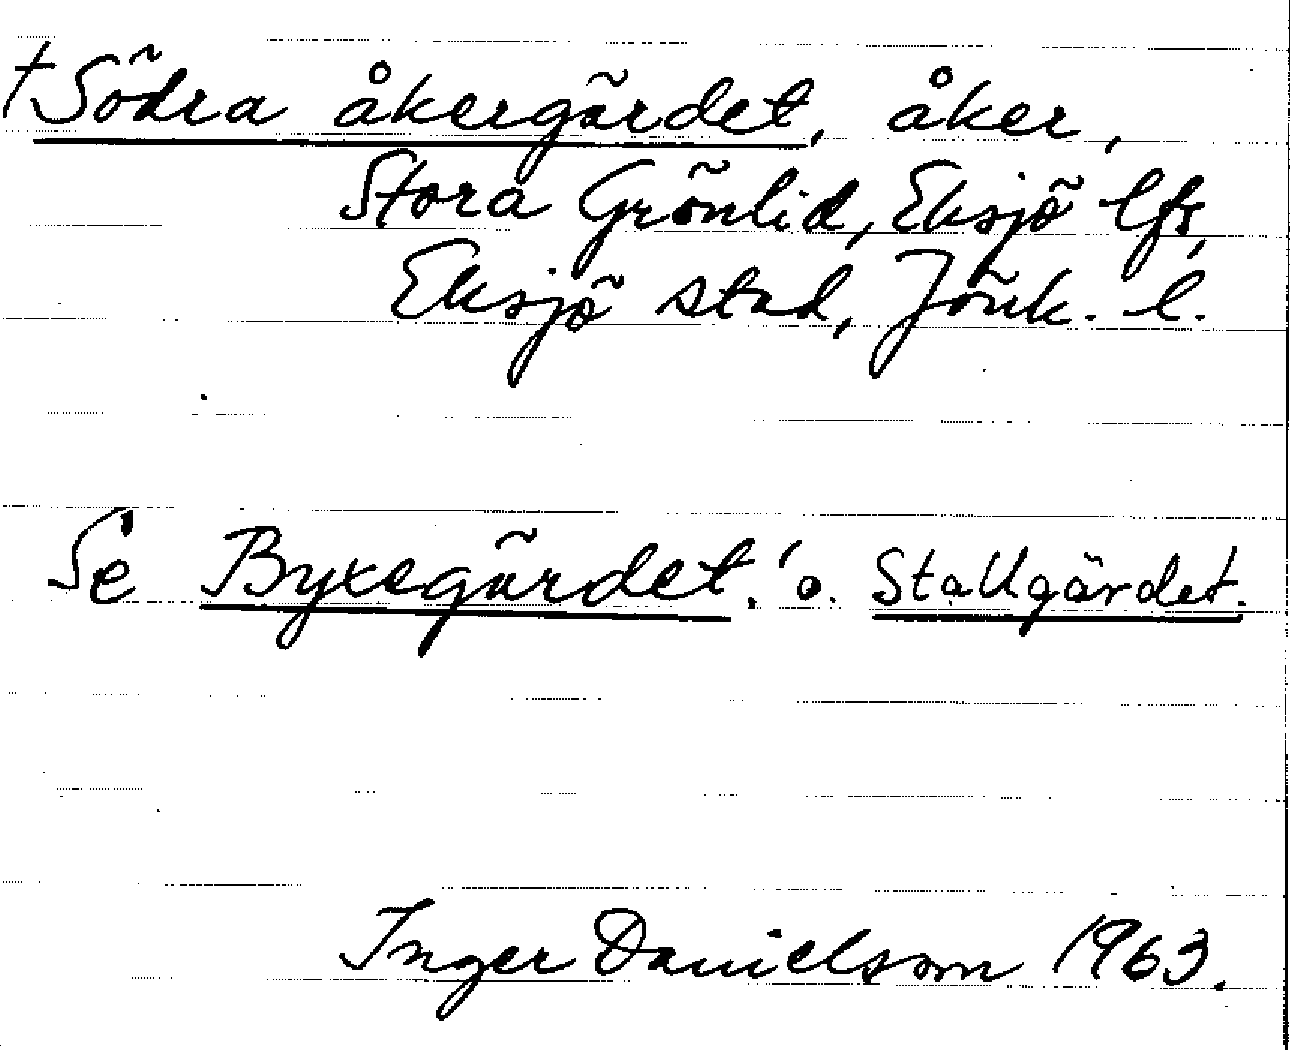 †Södra åkergärdet, åker,
Stora Grönlid, Eksjö lfs,
Eksjö stad, Jönk. l.
Se Byxegärdet.' o. Stallgärdet.
Inger Danielsson 1963.